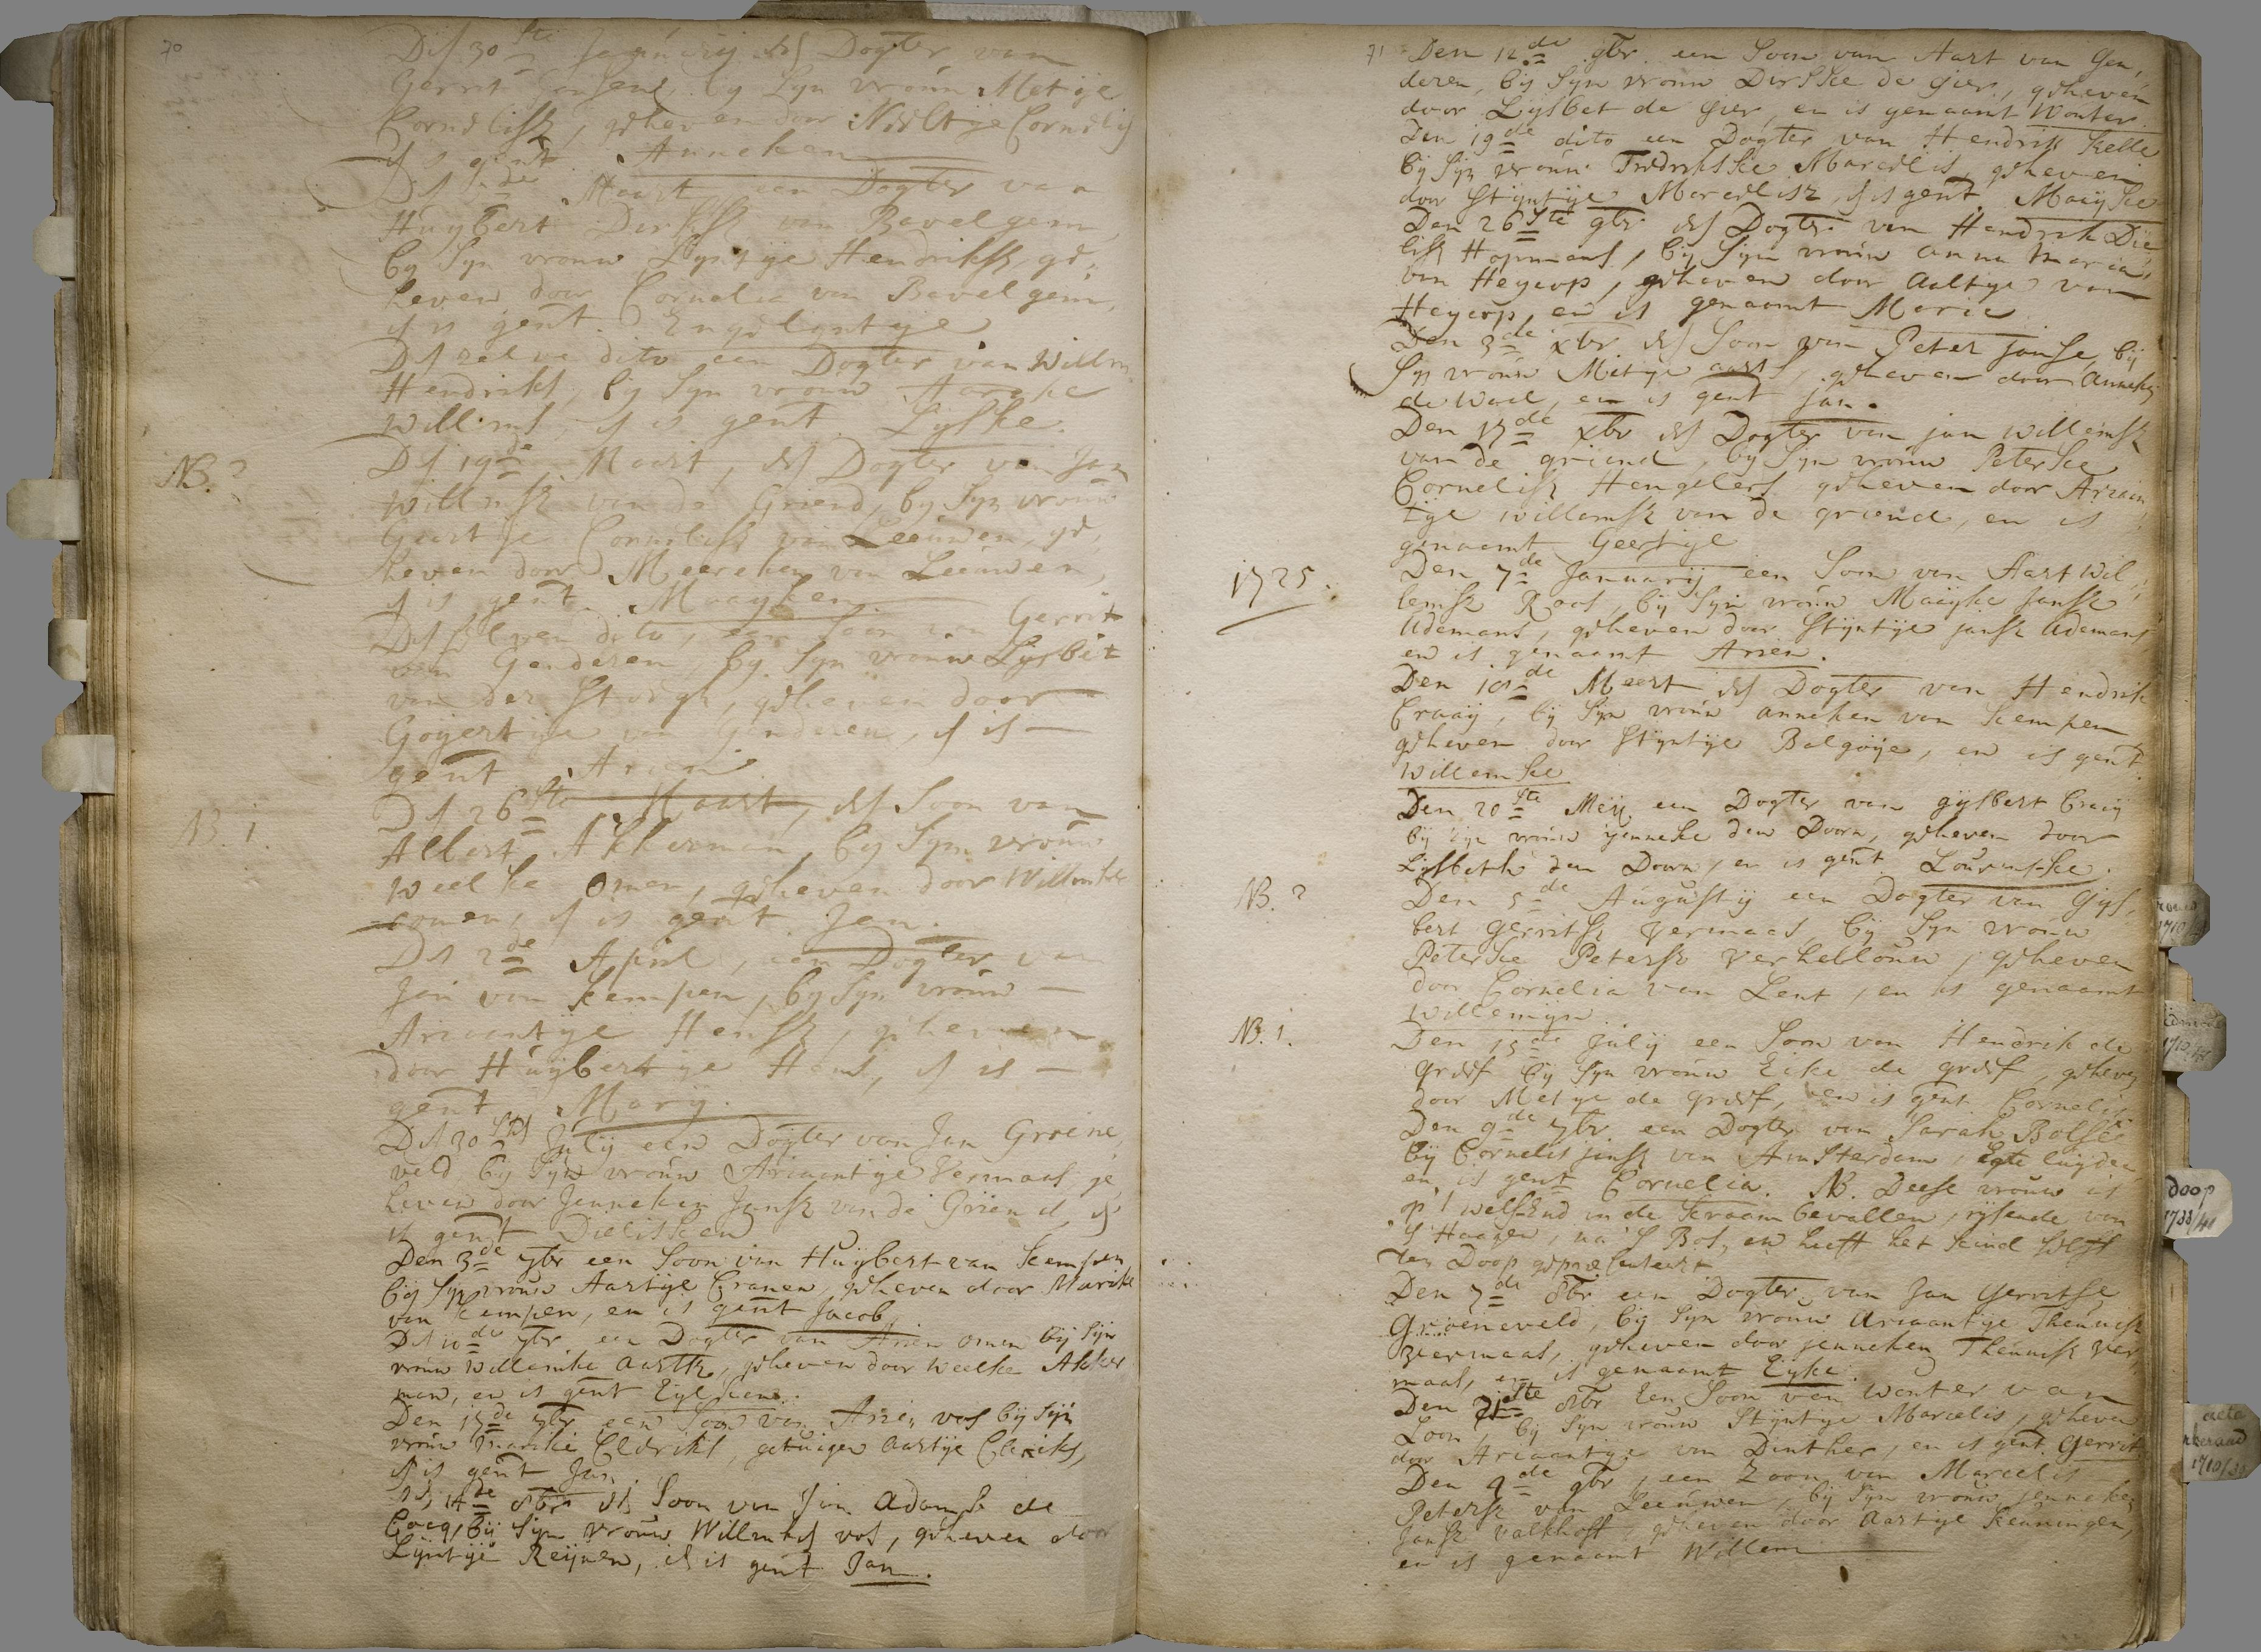 70
Den 30ste Januarij een Dogter van
Gerrit Jansens, by Syn vrouw Metije
Corneliss, geheven door Neeltije Cornelis
en is gent. Anneken
Den de Maart een Dogter van
Huybert Dirkss van Bavelgem
by Syn vrouw Lyntije Hendrikss, ge-
heven door Cornelia van Bavelgem,
en is gent. Engelentije
Den zelve dito een Dogter van Willm
Hendriks, by Syn vrouw
Willems, en is gent. Lyske.
NB. 2
Den 19de Maart, een Dogter van Jan
Willemsz van de Griend, by Syn vrouw
Geertje Cornelisse van Leeuwen, ge,
heven door Meereken van Leeuwen,
en is gent. Maayken.
Den selven dito, een Soon van Gerrit
van Genderen, by Syn vrouw Lysbet
van der Stoegh, geheven door
Goyertije van Genderen, en is
gent Arien
NB. 1.
Den 26ste Maart, een Soon van
Albert Akkerman, by Syn vrouw
Weelke Omen, geheven door Willemke
omen, en is gent. Jan.
Den 2de April, een Dogter van
Jan van Kempen, by Syn vrouw
Ariaantije Hensz, geheven
door Huybertije Hens, en is
gent Mary.
Den 30ste July een Dogter van Jan Groene,
veld, by Syn vrouw Ariaantije Vermaas, ge
heven door Jenneken Jansz van de Griend, en
is gent Dielisken
Den 3de 7br een Soon van Huybert van Kempen,
bij Syn vrouw Aartije Cranen, geheven door Marike
van Kempen, en is gent Jacob
Den 10de 7br een Dogter van Arien omen bij Sijn
vrouw Willemke Aartsz, geheven door Weelke Akker
man, en is gent Eyken.
Den 17de 7br een Soon van Arien vos bij Sijn
vrouw Clriks, getuigen Aartije Cleriks,
en is gent Jan
Den 14de 8br een Soon van Jan Adamse de
Cocq, bij Sijn vrouw Willemke vos, geheven door
Lijntije Reijnen, en is gent Jan.
71
Den 12de 9br. een Soon van Aart van Gen,
deren, bij Syn vrouw Dirske de Gier, geheven
door Lysbet de Gier, en is genaamt Wouter.
Den 19de dito een Dogter van Hendrik Kelle
bij Syn vrouw Fredrikske Marcelis, geheven
door Stijntije Marcelisz, en is gent. Maiyke
Den 26ste 9br. een Dogter van Hendrik Die
liss Hopmans, bij Syn vrouw Anna Maria
van Heycop, geheven door Aaltije van
Heycop, en is genaamt Maria
Den 3de xbr een Soon van Peter Janse, bij
Syn vrouw Metije aarts, geheven door Anneke
de Waal, en is gent Jan.
Den 17de xbr een Dogter van Jan Willemsz
van de griend, bij Syn vrouw Peterske
Cornelisz Hengelers geheven door Ariaen
tije Willemsz van de griend, en is
genaamt Geertije
1725.
Den 7de Januarij een Soon van Aart Wil,
lemsz Roos, bij Syn vrouw Maiyke Jansse
Udemans, geheven door Stijntije Jansz Udemans
en is genaamt Arien.
Den 18de Meert een Dogter van Hendrik
Craaij, bij Syn vrouw anneken van Kempen
geheven door Stijntije Balgoije, en is gent.
Willemke
Den 20ste Meij een Dogter van Gijsbert Craij
bij Syn vrouw Jenneke den Doorn, geheven door
Lijsbeth den Doorn, en is gent Lourenske.
NB. 2
Den 5de Augustij een Dogter van Gijs,
bert Gerritsz Vermaas, bij Syn vrouw
Peterske Petersz Verheblouw, geheven
door Cornelia van Lent, en is genaamt
Willemyn
NB. 1.
Den 15de Julij een Soon van Hendrik de
Groef bij Syn vrouw Eike de Groef, geheven
door Metije de Groef, en is gent. Cornelis
Den 9de 7br een Dogter van Sarah Bolsee
bij Cornelis Jansz van Amsterdam, Egte luijden
en is gent Cornelia. NB. Deese vrouw is
op 't wels-End in de Kraam bevallen, rijsende van
's Haagen, na 's Bos, en heeft het kind self
ten Doop gepresenteert
Den 7de 8br een Dogter van Jan Gerritse
Groeneveld, bij Syn vrouw Ariaantije Theunisz
Vermaas, geheven door Jenneken Theunisz Ver,
maas, en is genaamt Eyke.
Den 21ste 8br Een Soon van Wouter van
Loon, bij Syn vrouw Stijntije Marcelis, geheven
door Ariaantije van Dinther, en is gent. Gerrit
Den 4de 9br, een Zoon van Marcelis
Petersz van Leeuwen, bij Syn vrouw Jenneken
Jansz Valkhoff, geheven door Aartije Keuningen,
en is genaamt Willem
doop
1733/41
acte
1710/33